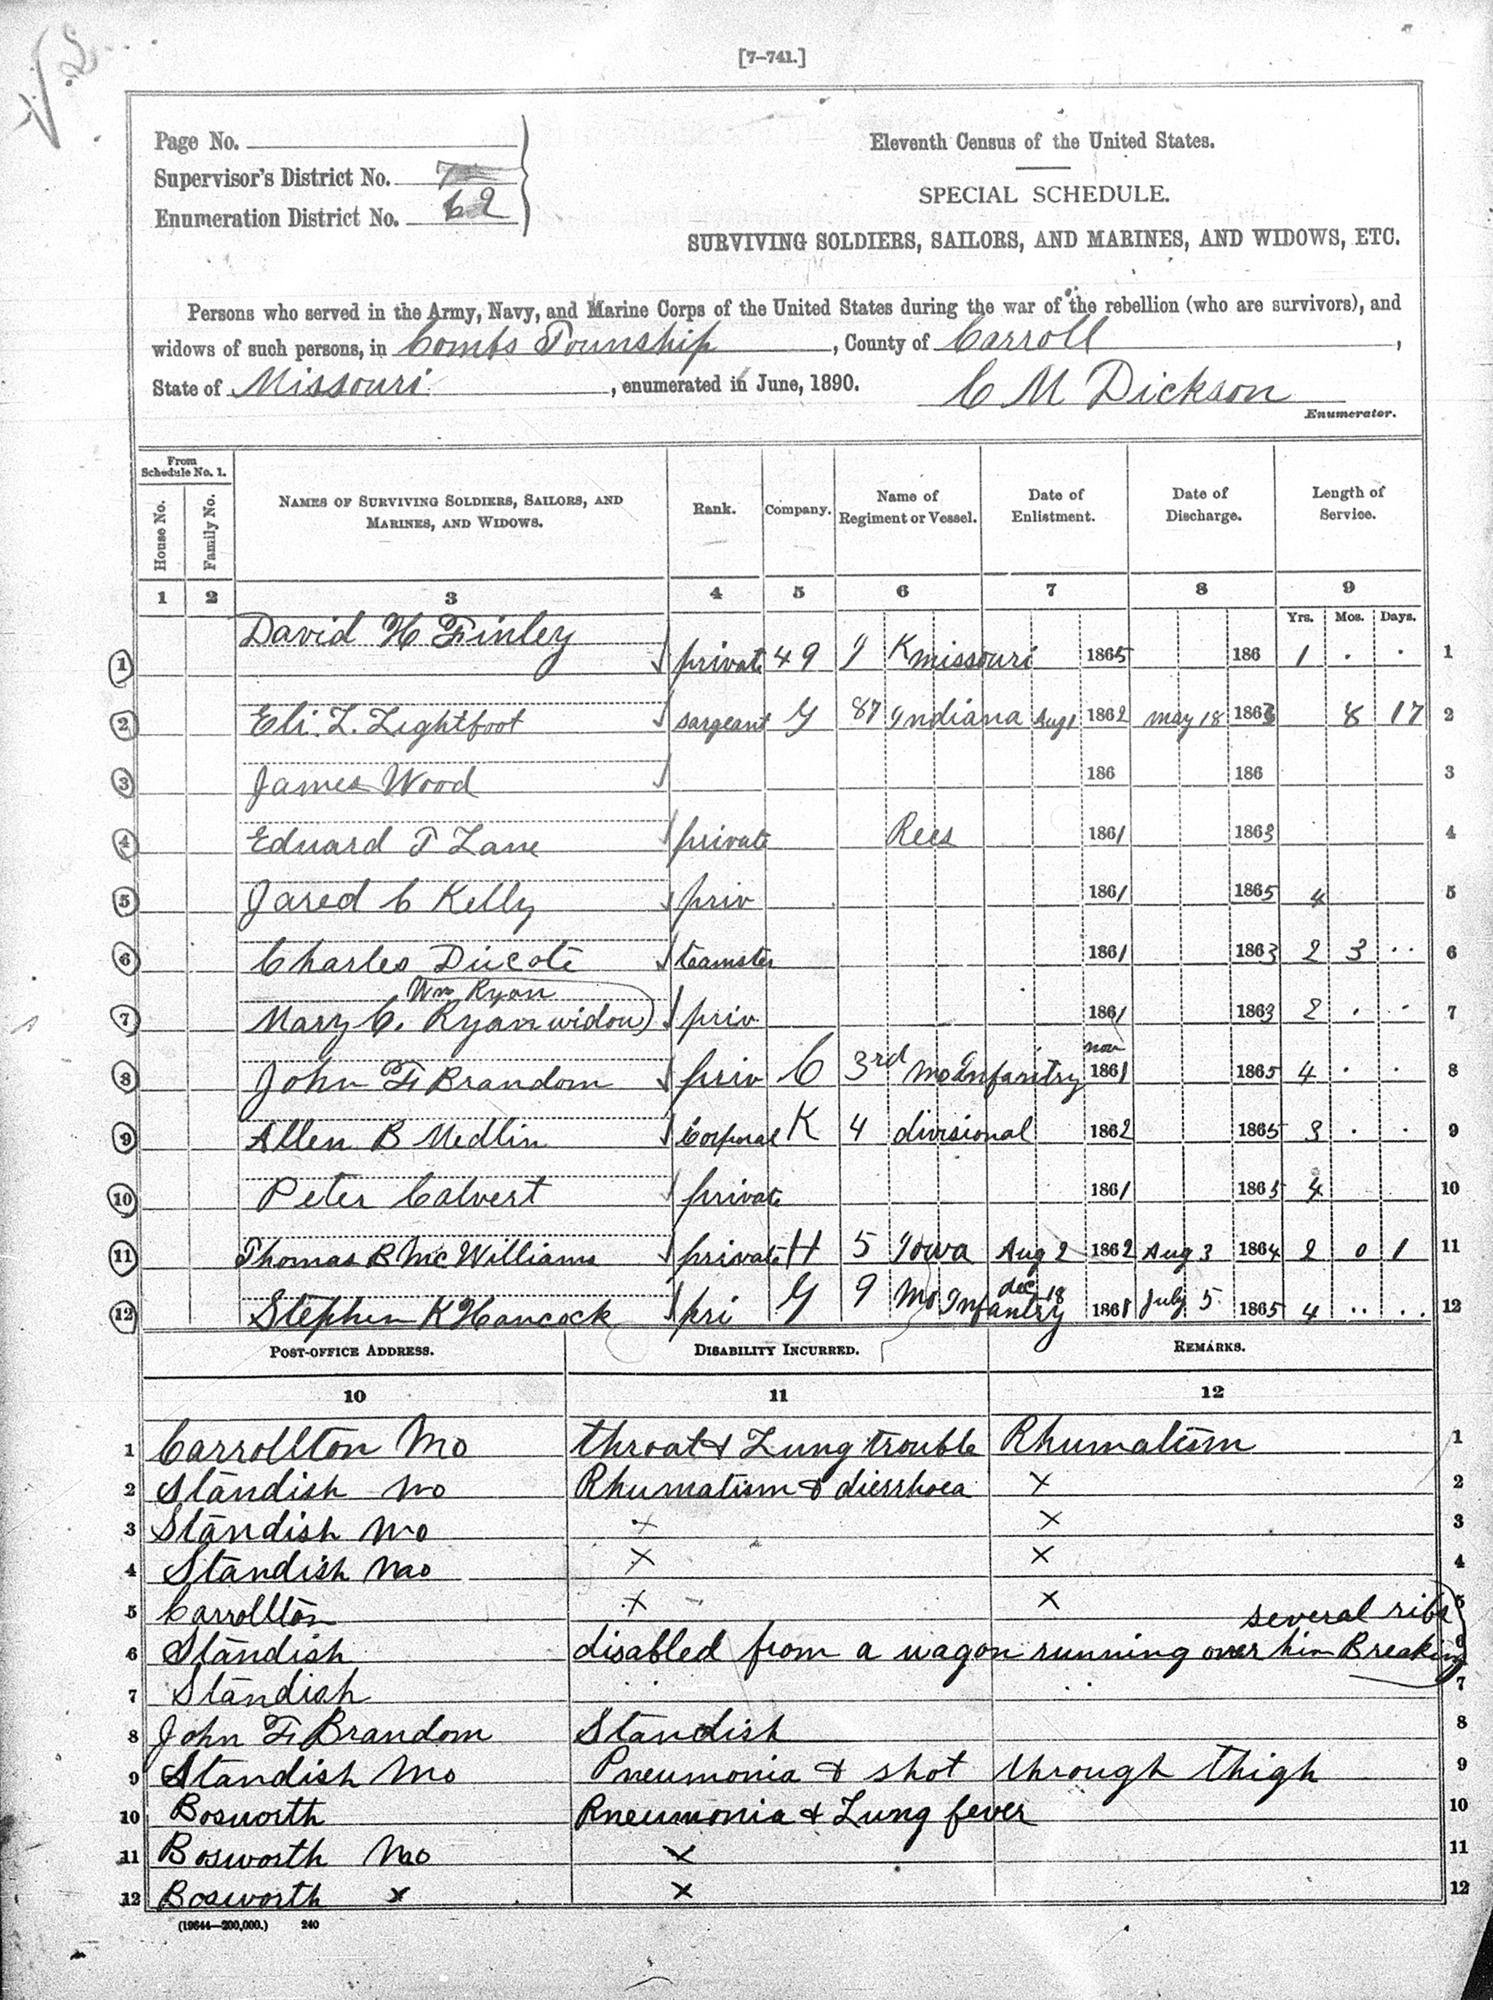 [7-741.]
Page No.
Supervisor's District No. 7
Enumeration District No. 62
Eleventh Census of the United States.
SPECIAL SCHEDULE.
SURVIVING SOLDIERS, SAILORS, AND MARINES, AND WIDOWS, ETC.
Persons who served in the Army, Navy, and Marine Corps of the United States during the war of the rebellion (who are survivors), and
widows of such persons, in Combs Township, County of Carroll,
State of Missouri, enumerated in June, 1890. C M Dickson
Enumerator.
From Schedule No. 1.
House No. Family No. NAMES OF SURVIVING SOLDIERS, SAILORS, AND MARINES, AND WIDOWS. Rank. Company. Name of Regiment or Vessel. Date of Enlistment. Date of Discharge. Length of Service.
1 2 3 4 5 6 7 8 9
Yrs. Mos. Days.
1 David H Finley private 49 K missouri 1865 186 1 . . 1
2 Eli. L. Lightfoot sargeant G 87 Indiana Aug 1 1862 may 18 1863 8 17 2
3 James Wood 186 186 3
4 Eduard T Lane private Rees 1861 1863 4
5 Jared C Kelly priv 1861 1865 4 5
6 Charles Ducote teamster 1861 1863 2 3 .. 6
Wm Ryan
7 Mary C. Ryan widow) priv 1861 1863 2 . . 7
nov
8 John F Brandom priv C 3rd Mo Infantry 1861 1865 4 . . 8
9 Allen B Medlin Corporal K 4 divisional 1862 1865 3 . . 9
10 Peter Calvert private 1861 1865 4 10
11 Thomas B McWilliams private H 5 Iowa Aug 2 1862 Aug 3 1864 2 0 1 11
12 Stephen K Hancock pri G 9 Mo Infantry dec 18 1861 July 5 1865 4 .. .. 12
POST-OFFICE ADDRESS. DISABILITY INCURRED. REMARKS.
10 11 12
1 Carrollton Mo throat & Lung trouble Rhumatism 1
2 Standish Mo Rhumatism & dierrhoea x 2
3 Standish Mo x x 3
4 Standish Mo x x 4
5 Carrollton x x 5
several ribs
6 Standish disabled from a wagon running over him Breaking 6
7 Standish .. .. 7
8 John F Brandom Standish 8
9 Standish Mo Pneumonia & shot through thigh 9
10 Bosworth Pneumonia & Lung fever 10
11 Bosworth Mo x 11
12 Bosworth x x 12
(19644—200,000.) 240